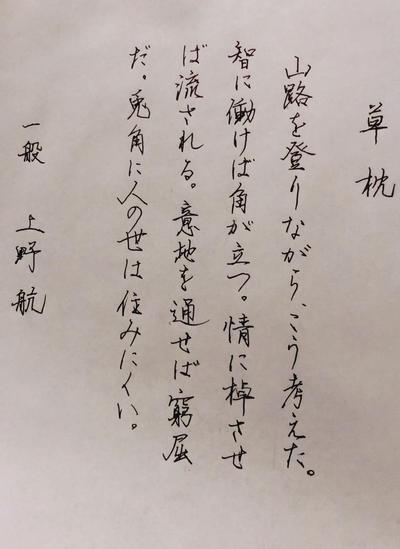 草枕
山路を登りながら、こう考えた。
智に働けば角が立つ。情に棹させ
ば流される。意地を通せば窮屈
だ。兎角に人の世は住みにくい。
一般 上野航